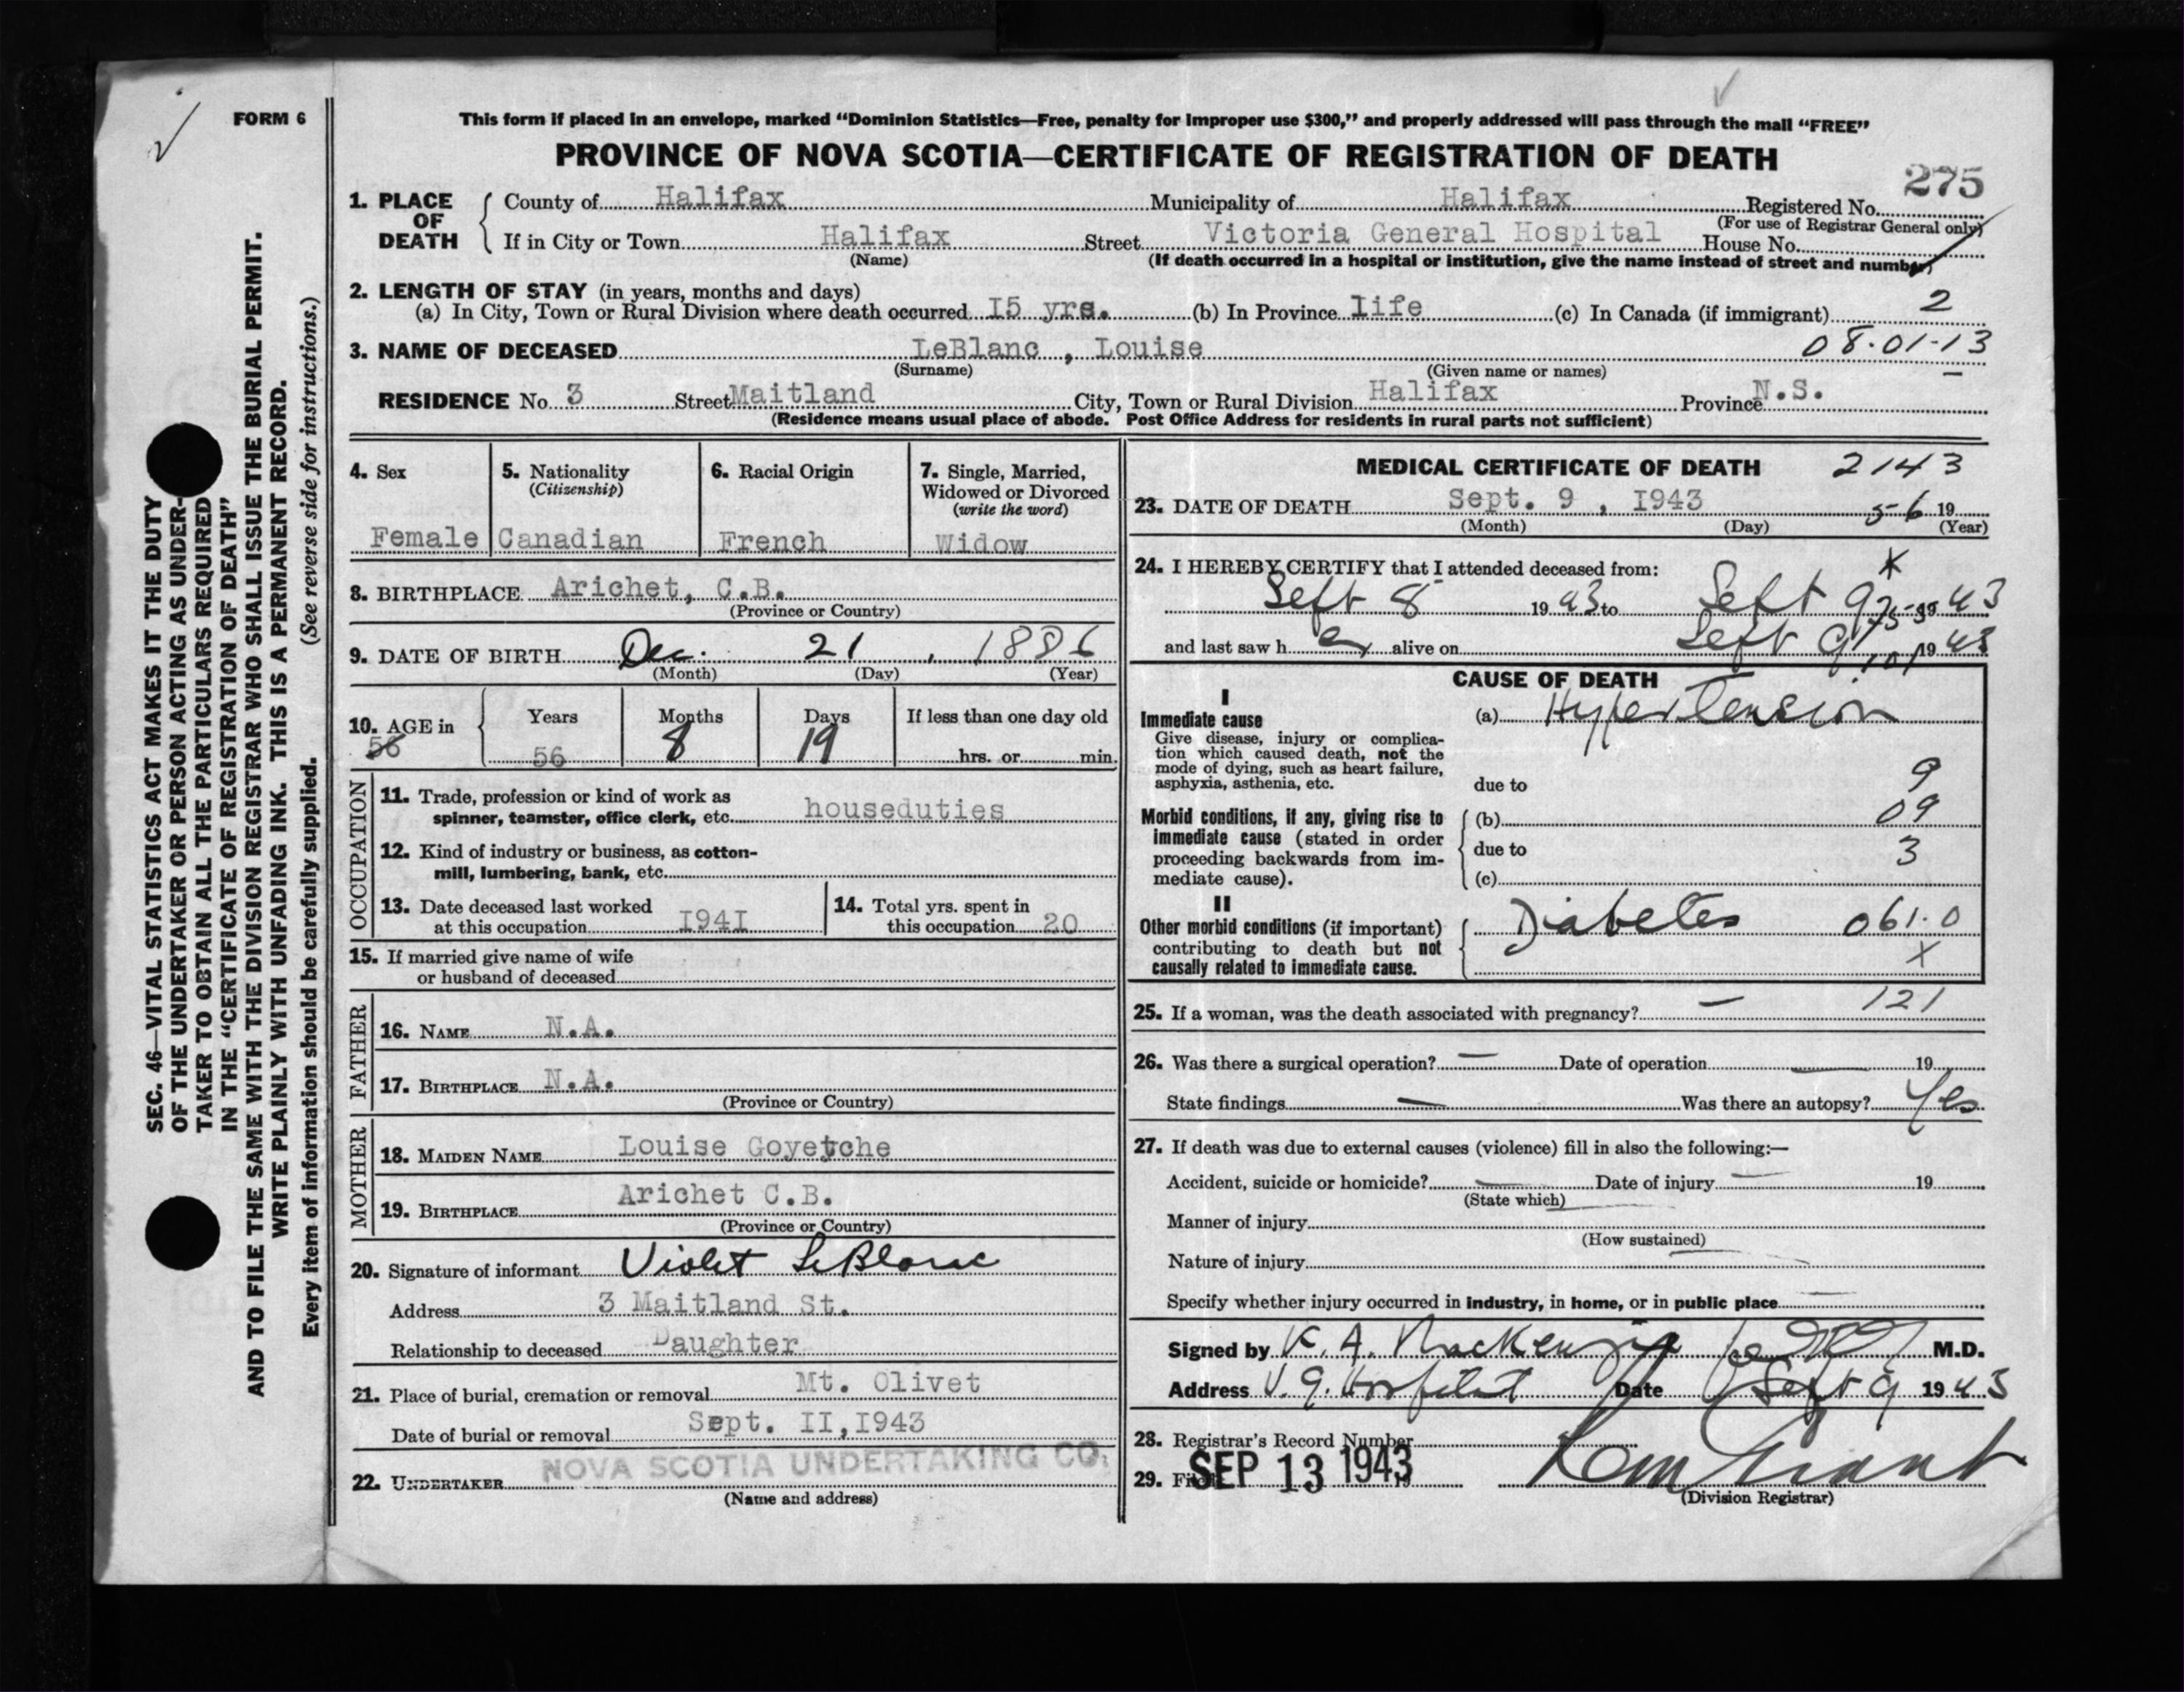 FORM 6
This form if placed in an envelope, marked “Dominion Statistics—Free, penalty for improper use $300,” and properly addressed will pass through the mail “FREE”
PROVINCE OF NOVA SCOTIA—CERTIFICATE OF REGISTRATION OF DEATH
275
1. PLACE OF DEATH County of Halifax Municipality of Halifax Registered No.
(For use of Registrar General only)
If in City or Town Halifax Street Victoria General Hospital House No.
(Name) (If death occurred in a hospital or institution, give the name instead of street and number)
2. LENGTH OF STAY (in years, months and days)
(a) In City, Town or Rural Division where death occurred 15 yrs. (b) In Province life (c) In Canada (if immigrant) 2
3. NAME OF DECEASED LeBlanc , Louise 08-01-13
(Surname) (Given name or names)
RESIDENCE No. 3 Street Maitland City, Town or Rural Division Halifax Province N.S.
(Residence means usual place of abode. Post Office Address for residents in rural parts not sufficient)
4. Sex
Female
5. Nationality
(Citizenship)
Canadian
6. Racial Origin
French
7. Single, Married,
Widowed or Divorced
(write the word)
Widow
8. BIRTHPLACE Arichet, C.B.
(Province or Country)
9. DATE OF BIRTH Dec. 21 , 1886
(Month) (Day) (Year)
10. AGE in Years Months Days If less than one day old
56 56 8 19 hrs. or min.
OCCUPATION
11. Trade, profession or kind of work as
spinner, teamster, office clerk, etc. houseduties
12. Kind of industry or business, as cotton-
mill, lumbering, bank, etc.
13. Date deceased last worked
at this occupation I94I
14. Total yrs. spent in
this occupation 20
15. If married give name of wife
or husband of deceased
FATHER
16. NAME N.A.
17. BIRTHPLACE N.A.
(Province or Country)
MOTHER
18. MAIDEN NAME Louise Goyetche
19. BIRTHPLACE Arichet C.B.
(Province or Country)
20. Signature of informant Violet LeBlanc
Address 3 Maitland St.
Relationship to deceased Daughter
21. Place of burial, cremation or removal Mt. Olivet
Date of burial or removal Sept. II,I943
22. UNDERTAKER NOVA SCOTIA UNDERTAKING CO.
(Name and address)
MEDICAL CERTIFICATE OF DEATH 2143
23. DATE OF DEATH Sept. 9 , I943 56 19
(Month) (Day) (Year)
24. I HEREBY CERTIFY that I attended deceased from:
Sept 8 1943 to Sept 9 1943
and last saw her alive on Sept 9 1943
CAUSE OF DEATH
I
Immediate cause
Give disease, injury or complica-
tion which caused death, not the
mode of dying, such as heart failure,
asphyxia, asthenia, etc.
(a) Hypertension
due to 9
Morbid conditions, if any, giving rise to
immediate cause (stated in order
proceeding backwards from im-
mediate cause).
(b) 09
due to 3
(c)
II
Other morbid conditions (if important)
contributing to death but not
causally related to immediate cause.
Diabetes 061.0
X
25. If a woman, was the death associated with pregnancy? — 121
26. Was there a surgical operation? — Date of operation — 19
State findings — Was there an autopsy? Yes
27. If death was due to external causes (violence) fill in also the following:—
Accident, suicide or homicide? — Date of injury — 19
(State which)
Manner of injury
(How sustained)
Nature of injury
Specify whether injury occurred in industry, in home, or in public place
Signed by K. A. MacKenzie M.D.
Address V. G. Hospital Date Sept 9 1943
28. Registrar's Record Number
29. Filed SEP 13 1943
(Division Registrar)
SEC. 46—VITAL STATISTICS ACT MAKES IT THE DUTY
OF THE UNDERTAKER OR PERSON ACTING AS UNDER-
TAKER TO OBTAIN ALL THE PARTICULARS REQUIRED
IN THE “CERTIFICATE OF REGISTRATION OF DEATH”
AND TO FILE THE SAME WITH THE DIVISION REGISTRAR WHO SHALL ISSUE THE BURIAL PERMIT.
WRITE PLAINLY WITH UNFADING INK. THIS IS A PERMANENT RECORD.
Every item of information should be carefully supplied. (See reverse side for instructions.)